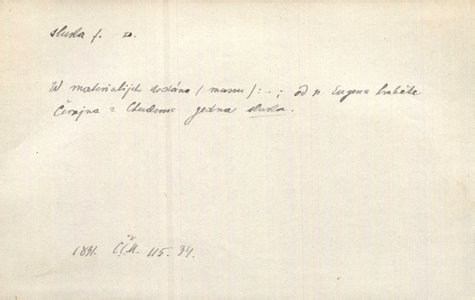 sluka f. xo.
W materialijch dodáno (museu): - ; od p. Eugena hraběte
Černjna z Chudenic jedna sluka.
1831. ČČM. 115. 34.